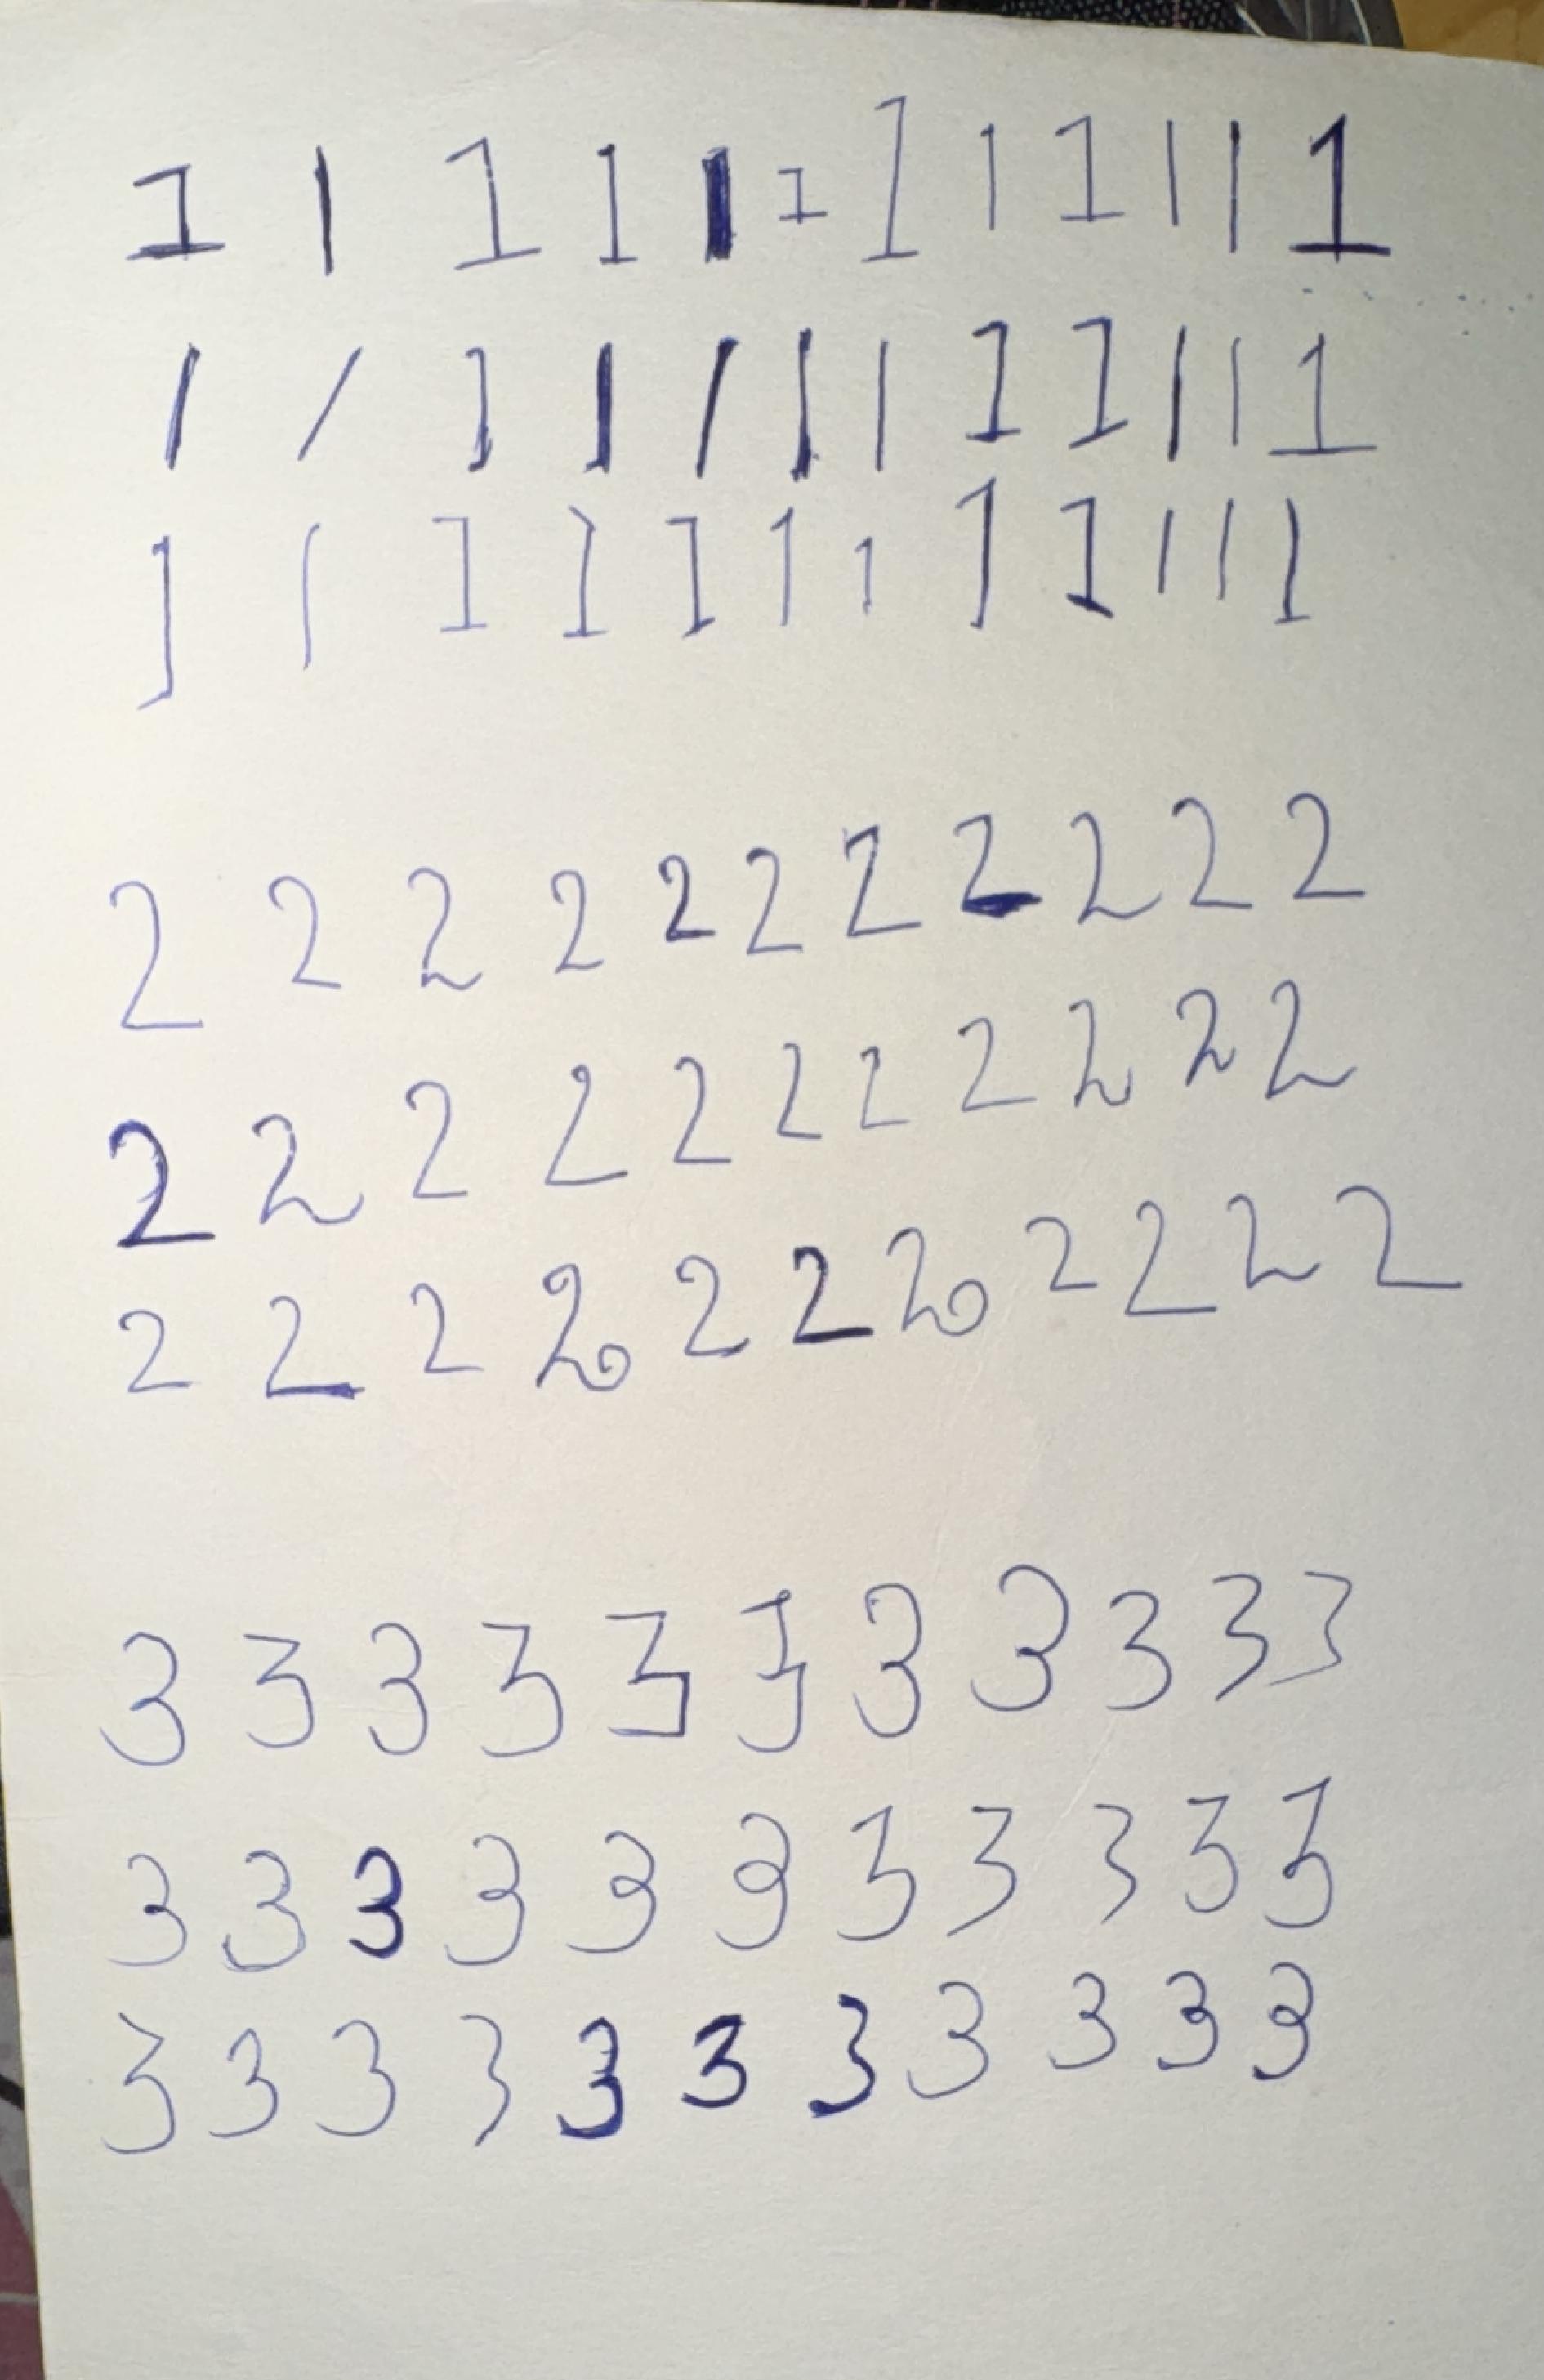 1 1 1 1 1 1 1 1 1 1 1 1
1 1 1 1 1 1 1 1 1 1 1 1
1 1 1 1 1 1 1 1 1 1 1 1
2 2 2 2 2 2 2 2 2 2 2
2 2 2 2 2 2 2 2 2 2 2
2 2 2 2 2 2 2 2 2 2 2
3 3 3 3 3 3 3 3 3 3 3
3 3 3 3 3 3 3 3 3 3 3
3 3 3 3 3 3 3 3 3 3 3